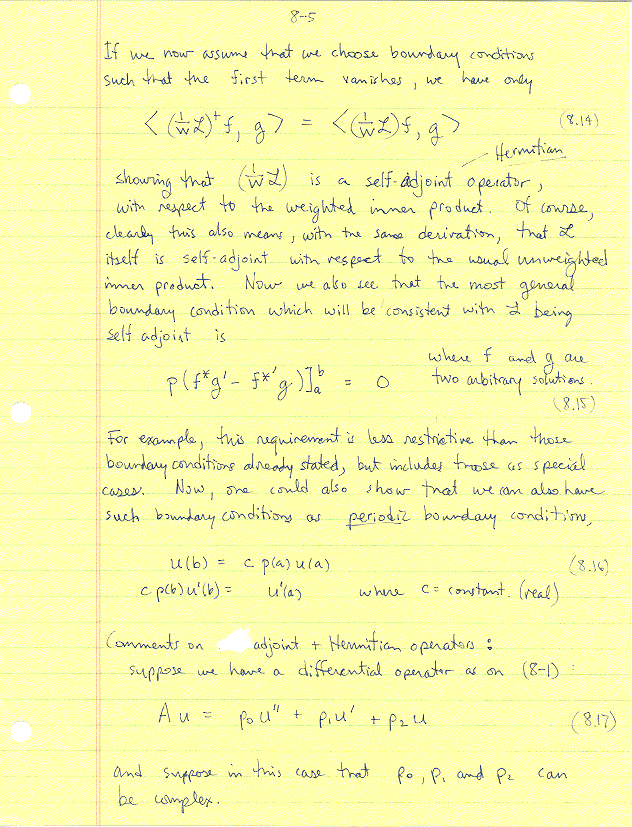 8-5
If we now assume that we choose boundary conditions
such that the first term vanishes, we have only
< (1/w ℒ)† f, g > = < (1/w ℒ) f, g > (8.14)
Hermitian
showing that (1/w ℒ) is a self-adjoint operator,
with respect to the weighted inner product. Of course,
clearly this also means, with the same derivation, that ℒ
itself is self-adjoint with respect to the usual unweighted
inner product. Now we also see that the most general
boundary condition which will be consistent with ℒ being
self adjoint is
p(f*g' - f*'g)]ₐᵇ = 0 where f and g are
two arbitrary solutions.
(8.15)
For example, this requirement is less restrictive than those
boundary conditions already stated, but includes those as special
cases. Now, one could also show that we can also have
such boundary conditions as periodic boundary condition,
u(b) = c p(a) u(a) (8.16)
c p(b) u'(b) = u'(a) where c = constant. (real)
Comments on adjoint + Hermitian operators :
suppose we have a differential operator as on (8-1) :
A u = p₀ u'' + p₁ u' + p₂ u (8.17)
and suppose in this case that p₀, p₁ and p₂ can
be complex.